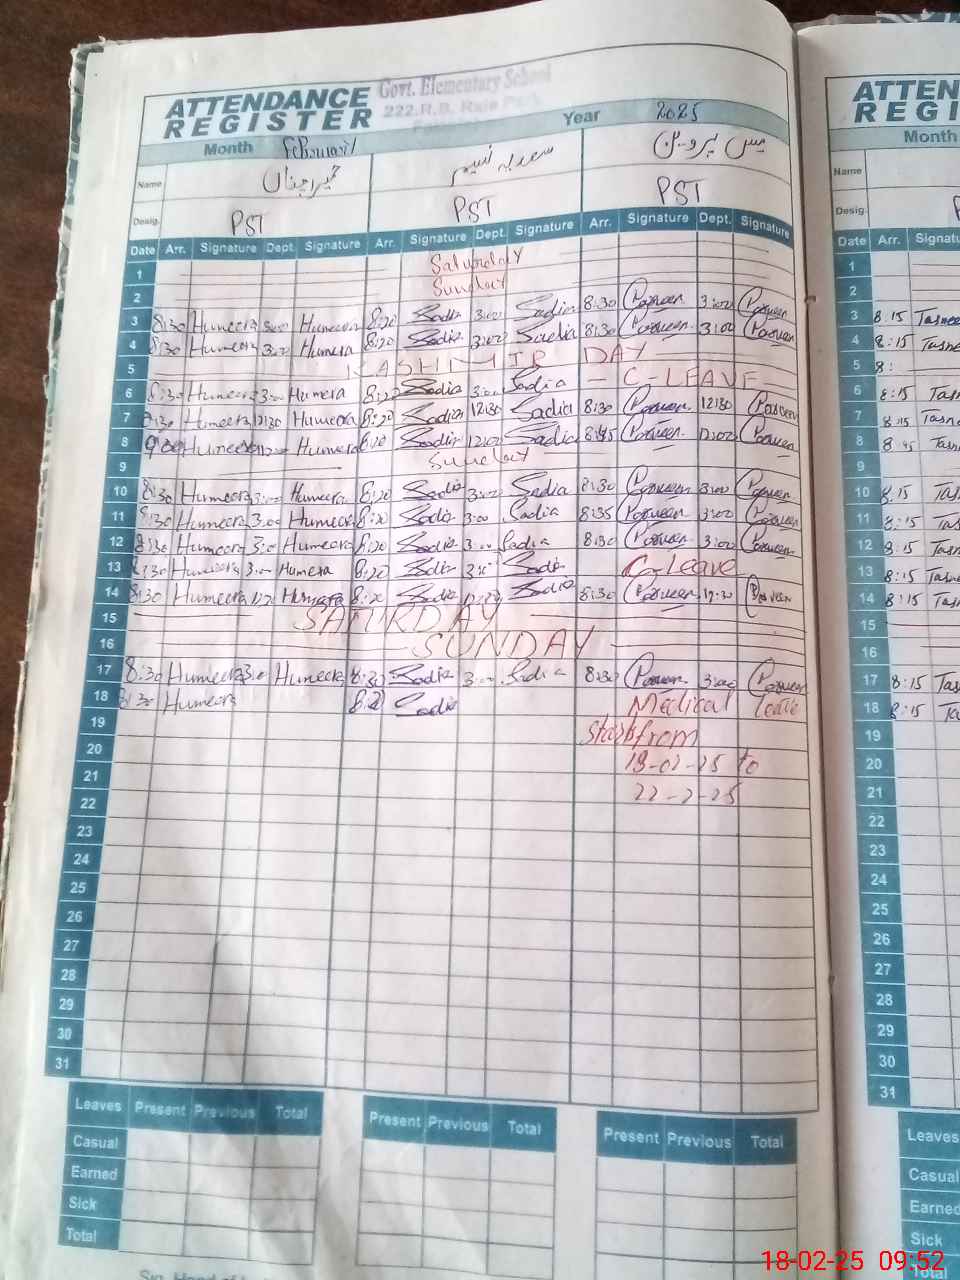 Govt. Elementary School
ATTENDANCE REGISTER
222.R.B.
Year 2025
Month
Name حمیرا سعدیہ نسیم مس پروین
Desig. PST PST PST
Date Arr. Signature Dept. Signature Arr. Signature Dept. Signature Arr. Signature Dept. Signature
1 Saturday
2 Sunday
3 8:30 Humeera 3:00 Humeera 8:20 Sadia 3:00 Sadia 8:30 Parveen 3:00 Parveen
4 8:30 Humeera 3:00 Humera 8:20 Sadia 3:00 Sadia 8:30 Parveen 3:00 Parveen
5 KASHMIR DAY
6 8:30 Humeera 3:00 Humera 8:20 Sadia 3:00 Sadia - C-LEAVE -
7 8:30 Humeera 12:30 Humeera 8:20 Sadia 12:30 Sadia 8:30 Parveen 12:30 Parveen
8 9:00 Humeera Humeera 8:20 Sadia 12:00 Sadia 8:45 Parveen 12:00 Parveen
9 Sunday
10 8:30 Humeera 3:00 Humeera 8:20 Sadia 3:00 Sadia 8:30 Parveen 3:00 Parveen
11 8:30 Humeera 3:00 Humeera 8:20 Sadia 3:00 Sadia 8:35 Parveen 3:00 Parveen
12 8:30 Humeera 3:00 Humeera 8:20 Sadia 3:00 Sadia 8:30 Parveen 3:00 Parveen
13 8:30 Humeera 3:00 Humera 8:20 Sadia 3:00 Sadia C-Leave
14 8:30 Humeera Humeera 8:20 Sadia Sadia 8:30 Parveen 12:30 Parveen
15 SATURDAY
16 SUNDAY
17 8:30 Humeera 3:00 Humeera 8:20 Sadia 3:00 Sadia 8:30 Parveen 3:00 Parveen
18 8:30 Humeera 8:20 Sadia Medical leave
19 start from
20 18-02-25 to
21 22-2-25
22
23
24
25
26
27
28
29
30
31
Leaves Present Previous Total Present Previous Total Present Previous Total
Casual
Earned
Sick
Total
ATTEN
REG
Month
Name
Desig.
Date Arr.
1
2
3 8:15
4 8:15
5 8:
6 8:15
7 8:15
8 8:45
9
10 8:15
11 8:15
12 8:15
13 8:15
14 8:15
15
16
17 8:15
18 8:15
19
20
21
22
23
24
25
26
27
28
29
30
31
Leaves
Casual
Earned
Sick
Total
18-02-25 09:52